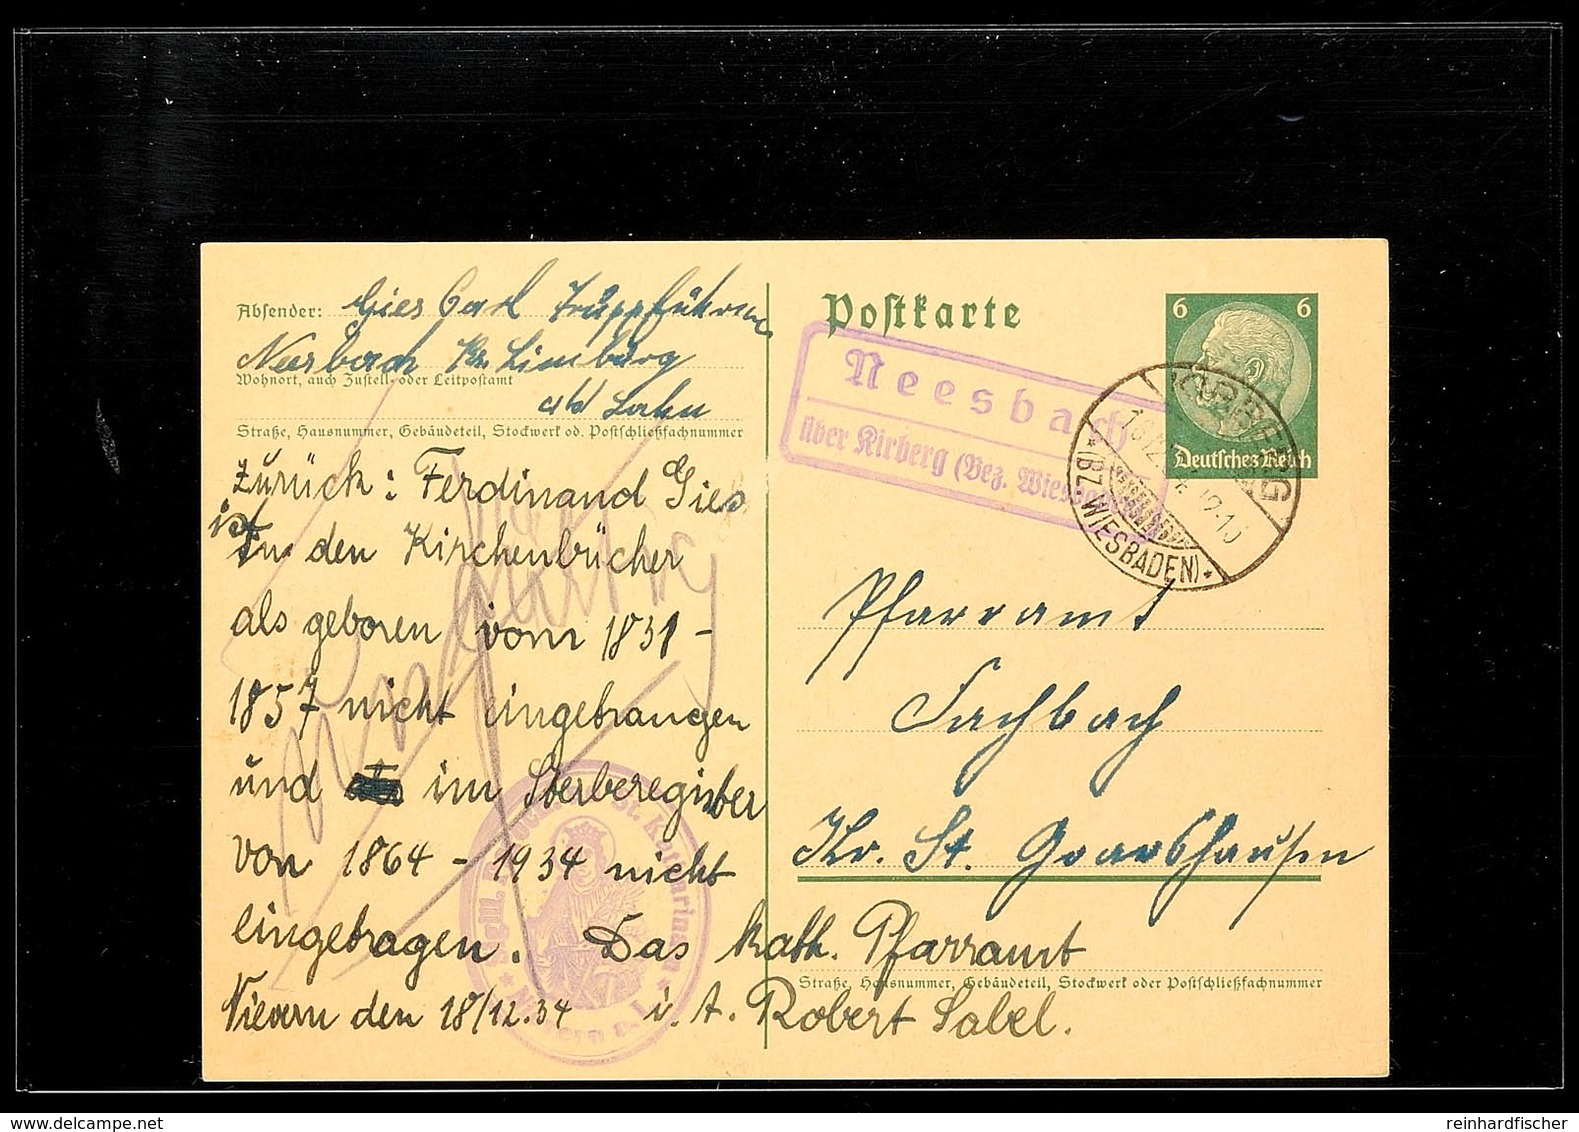 Absender: Gies Carl Truppführer
Neesbach Kr. Limburg
Wohnort, auch Zustell- oder Leitpostamt
a/d Lahn
Straße, Hausnummer, Gebäudeteil, Stockwerk od. Postschließfachnummer
Zurück: Ferdinand Gies
ist
In den Kirchenbücher
als geboren vom 1831 -
1857 nicht eingetrangen
und im Sterberegister
von 1864 - 1934 nicht
eingetragen. Das kath. Pfarramt
Nievern den 18/12.34 i. A. Robert Sabel.
Postkarte
6 6
Deutsches Reich
Neesbach
über Kirberg (Bez. Wiesbaden)
KIRBERG
(BZ. WIESBADEN)
Pfarramt
Fachbach
Kr. St. Goarshausen
Straße, Hausnummer, Gebäudeteil, Stockwerk oder Postschließfachnummer
St. Katharina
reinhardfischer